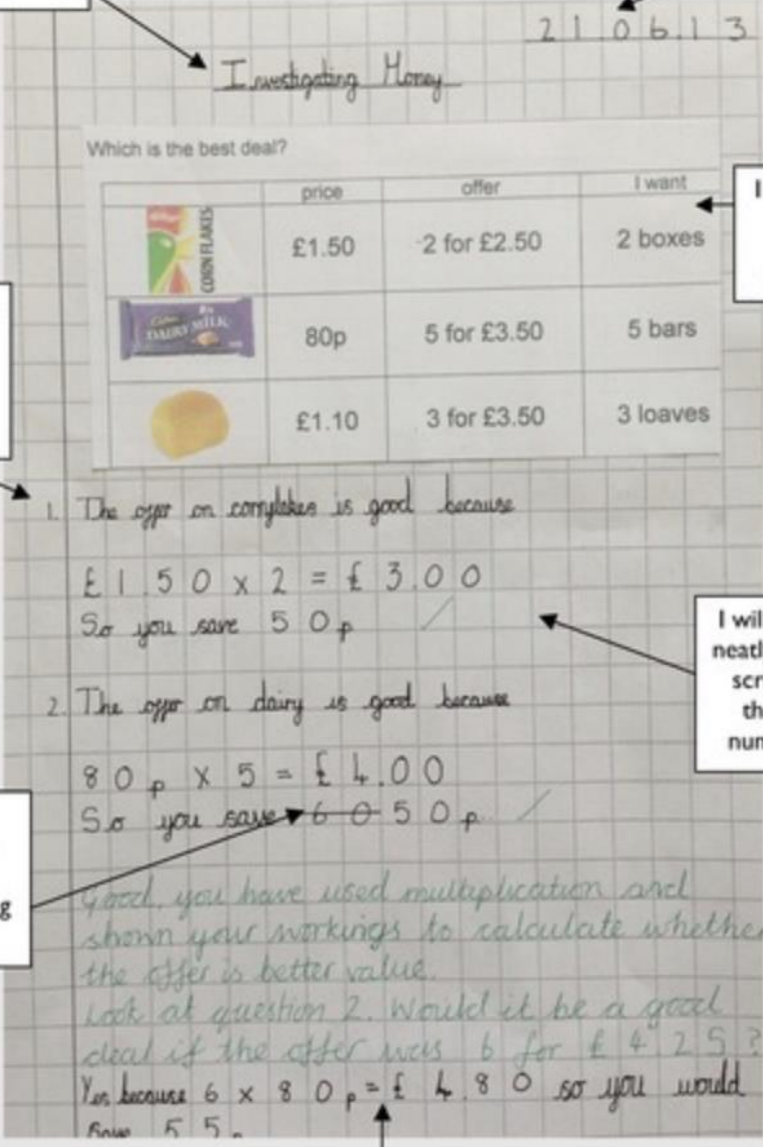 21.06.13
Investigating Money
Which is the best deal?
price offer I want
CORN FLAKES £1.50 2 for £2.50 2 boxes
Cadbury DAIRY MILK 80p 5 for £3.50 5 bars
£1.10 3 for £3.50 3 loaves
1. The offer on cornflakes is good because
£1.50 x 2 = £3.00
So you save 50p
I wil
neatl
scr
th
num
2. The offer on dairy is good because
80p x 5 = £4.00
So you save 60 50p
g
Good, you have used multiplication and
shown your workings to calculate whether
the offer is better value.
Look at question 2. Would it be a good
deal if the offer was 6 for £4.25?
Yes because 6 x 80p = £4.80 so you would
save 55p